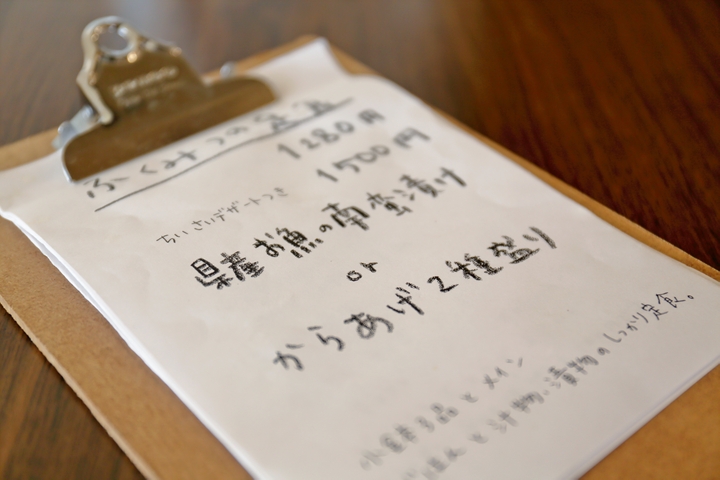 ふくみつの定食
1280円
ちいさいデザートつき 1500円
県産お魚の南蛮漬け
or
からあげ2種盛り
小鉢3品とメイン
ごはんと汁物、漬物のしっかり定食。